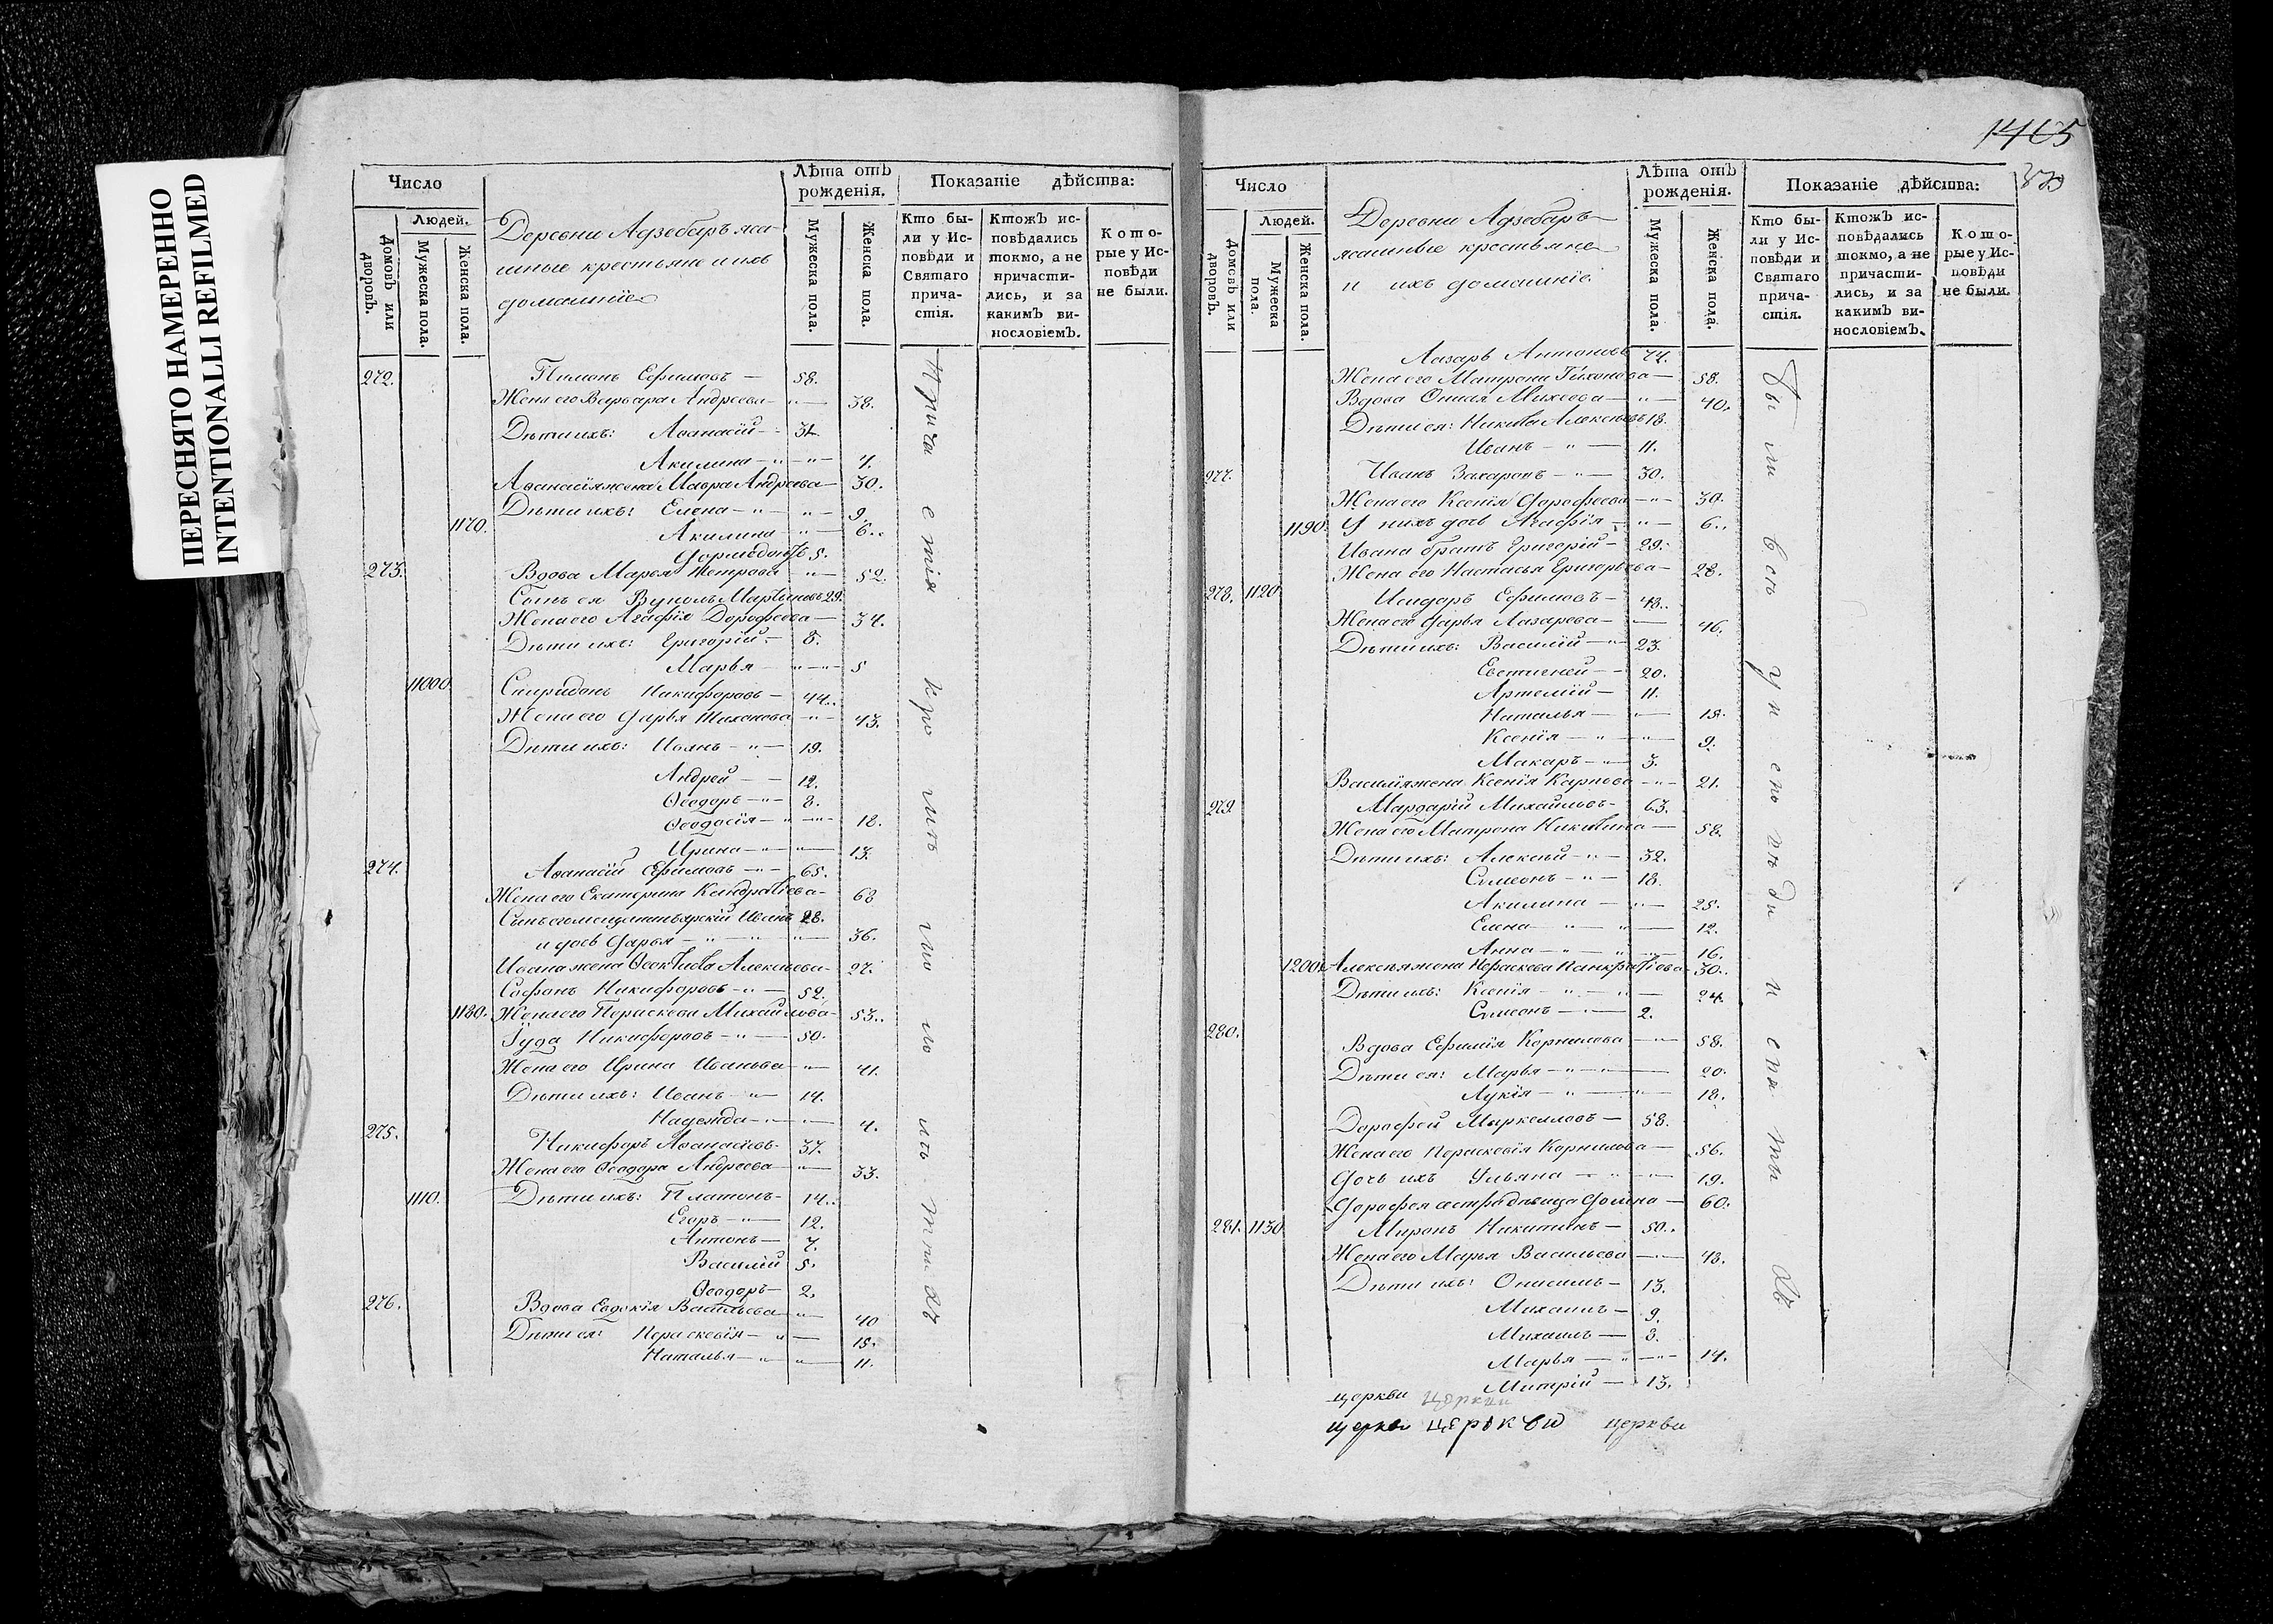 ПЕРЕСНЯТО НАМЕРЕННО
INTENTIONALLI REFILMED
Число
Людей.
Домовъ или дворовъ.
Мужеска пола.
Женска пола.
Деревни Адзебаръ яса-
шные крестьяне и ихъ
домашніе
Лѣта отъ рожденія.
Мужеска пола.
Женска пола.
Показаніе дѣйства:
Кто бы-
ли у Ис-
повѣди и
Святаго
прича-
стія.
Ктожъ ис-
повѣдались
токмо, а не
причасти-
лись, и за
какимъ ви-
нословіемъ.
Кото-
рые у Ис-
повѣди
не были.
272. Пимонъ Ефимовъ — 58.
Жена его Варвара Андреева — 38.
Дѣти ихъ: Аѳанасій — 31.
Акилина — 7.
Аѳанасія жена Мавра Андреева — 30.
Дѣти ихъ: Елена — 9.
1170. Акилина — 6.
5.
273. Вдова Марья Петрова — 52.
Сынъ ея Вуколъ Мартыновъ 29.
Жена его Агафія Дорофеева — 34.
Дѣти ихъ: Григорій — 8.
Марья — 5
11000 Спиридонъ Никифоровъ — 44.
Жена его Дарья — 43.
Дѣти ихъ: Иванъ — 19.
Андрей — 12.
Ѳеодоръ — 8.
Ѳеодосія — 18.
Ирина — 13.
274. Аѳанасій Ефимовъ — 65.
Жена его Екатерина Кондратіева — 68
Иванъ 28.
и дочь Дарья — 36.
Ивана жена Ѳеоктиста Алексѣева — 27.
Софонъ Никифоровъ — 52.
1180. Жена его Параскева Михайлова — 53.
Іуда Никифоровъ — 50.
Жена его Ирина Иванова — 41.
Дѣти ихъ: Иванъ — 14.
Надежда — 4.
275. Никифоръ Аѳанасіевъ — 37.
Жена его Ѳеодора Андреева — 33.
1110. Дѣти ихъ: Платонъ — 14.
Егоръ — 12.
Антонъ — 7.
Василій 5.
Ѳеодоръ — 2.
276. Вдова Евдокія Васильева — 40
Дѣти ея: Параскевія — 15.
Наталья — 11.
1405
Число
Людей.
Домовъ или дворовъ.
Мужеска пола.
Женска пола.
Деревни Адзебаръ
ясашные крестьяне
и ихъ домашніе
Лѣта отъ рожденія.
Мужеска пола.
Женска пола.
Показаніе дѣйства:
Кто бы-
ли у Ис-
повѣди и
Святаго
прича-
стія.
Ктожъ ис-
повѣдались
токмо, а не
причасти-
лись, и за
какимъ ви-
нословіемъ.
Кото-
рые у Ис-
повѣди
не были.
Лазарь Антоновъ 74.
Жена его Матрона Тихонова — 58.
Вдова Михеева — 40.
Дѣти ея: Никита Алексѣевъ 18.
Иванъ — 11.
277. Иванъ Захаровъ — 30.
Жена его Ксенія Дорофеева — 30.
1190. У нихъ дочь Агафія — 6.
Ивана братъ Григорій — 29.
Жена его Настасья Григорьева — 28.
278. 1120. Исидоръ Ефимовъ — 48.
Жена его Дарья Лазарева — 46.
Дѣти ихъ: Василій — 23.
Евстигней — 20.
Артемій — 11.
Наталья — 18.
Ксенія — 9.
Макаръ — 3.
Василія жена Ксенія Карпова — 21.
279. Мардарій Михайловъ — 63.
Жена его Матрона Никитина — 58.
Дѣти ихъ: Алексѣй — 32.
Симеонъ — 18.
Акилина — 25.
Елена — 12.
Анна — 16.
1200. Алексѣя жена Параскева Панкратіева — 30.
Дѣти ихъ: Ксенія — 24.
Симеонъ — 2.
280. Вдова Ефимія Корнилова — 58.
Дѣти ея: Марья — 20.
Лукія — 18.
Дорофей Маркелловъ — 58.
Жена его Параскевія Корнилова — 56.
Дочь ихъ Ульяна — 19.
60.
281. 1130. Миронъ Никитинъ — 50.
Жена его Марья Васильева — 48.
Дѣти ихъ: Онисимъ — 13.
Михаилъ — 9.
Михаилъ — 3.
Марья — 14.
Митрій — 13.
церкви церкви
церкви церькви церкви